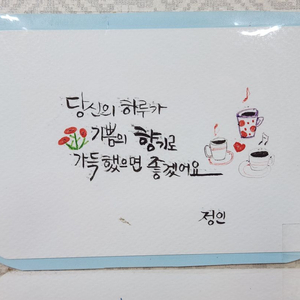 당신의 하루가
기쁨의 향기로
가득했으면 좋겠어요
정인